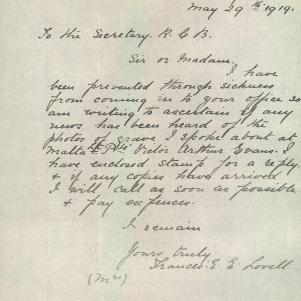 May 29th 1919.
To the Secretary. R.C.B.
Sir or Madam.
I have
been prevented through sickness
from coming in to your office so
am writing to ascertain if any
news has been heard of the
photos of grave I spoke about at
Malta of Pte Victor Arthur Evans. I
have enclosed stamp for a reply
& if any copies have arrived
I will call as soon as possible
& pay expences.
I remain
Yours truly
Frances. E. E. Lovell
(Mrs)